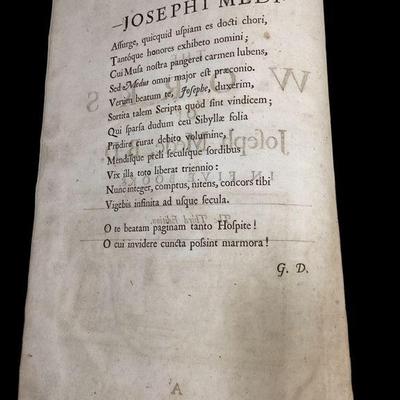 JOSEPHI MEDI
Assurge, quicquid uspiam es docti chori,
Tantóque honores exhibeto nomini;
Cui Musa nostra pangeret carmen lubens,
Sed Medus omni major est præconio.
Verùm beatum te, Josephe, duxerim,
Sortita talem Scripta quòd sint vindicem;
Qui sparsa dudum ceu Sibyllæ folia
Prodire curat debito volumine,
Mendísque preli seculíque sordibus
Vix illa toto liberat triennio:
Nunc integer, comptus, nitens, concors tibi
Vigebis infinita ad usque secula.
O te beatam paginam tanto Hospite!
O cui invidere cuncta possint marmora!
G. D.
A